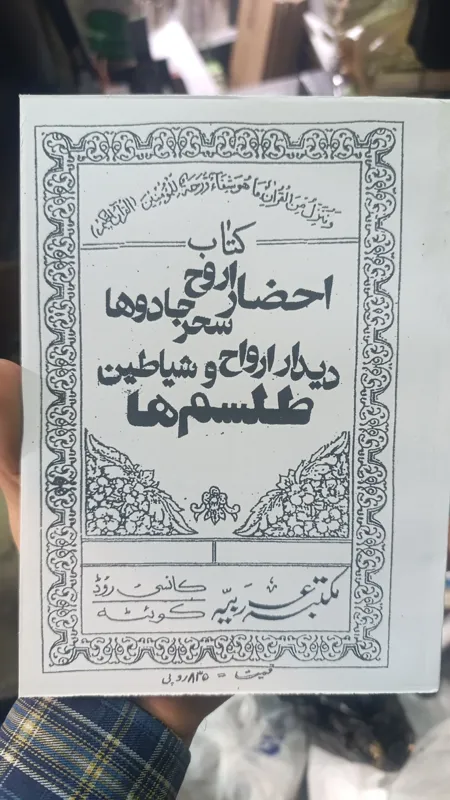 وننزل من القرآن ما هو شفاء ورحمة للمؤمنين
کتاب
احضار اروح
سحر جادوها
دیدار ارواح و شیاطین
طلسم ها
مکتبہ عربیہ
کانسی روڈ
کوئٹہ
قیمت = ۸۳۵ روپی